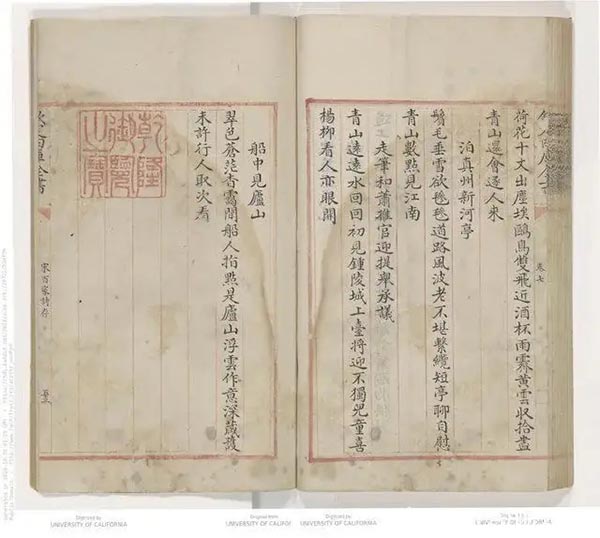 卷七
荷花十丈出塵埃鷗鳥雙飛近酒杯雨霽黃雲収拾盡
青山還會逐人来
泊真州新河亭
鬢毛垂雪欲毿毿道路風波老不堪繫纜短亭聊自慰
青山數點見江南
走筆和蕭推官迎提舉承議
青山遠遠水回回初見鍾陵城上臺將迎不獨兒童喜
楊柳看人亦眼開
船中見廬山
翠色蒼茫杳靄間船人指點是廬山浮雲作意深藏護
未許行人取次看
乾隆御覽之寶
全書
宋百家詩存
Digitized by
UNIVERSITY OF CALIFORNIA
Original from
UNIVERSITY OF CALIFOR
Digitized by
UNIVERSITY OF CALIFORNIA